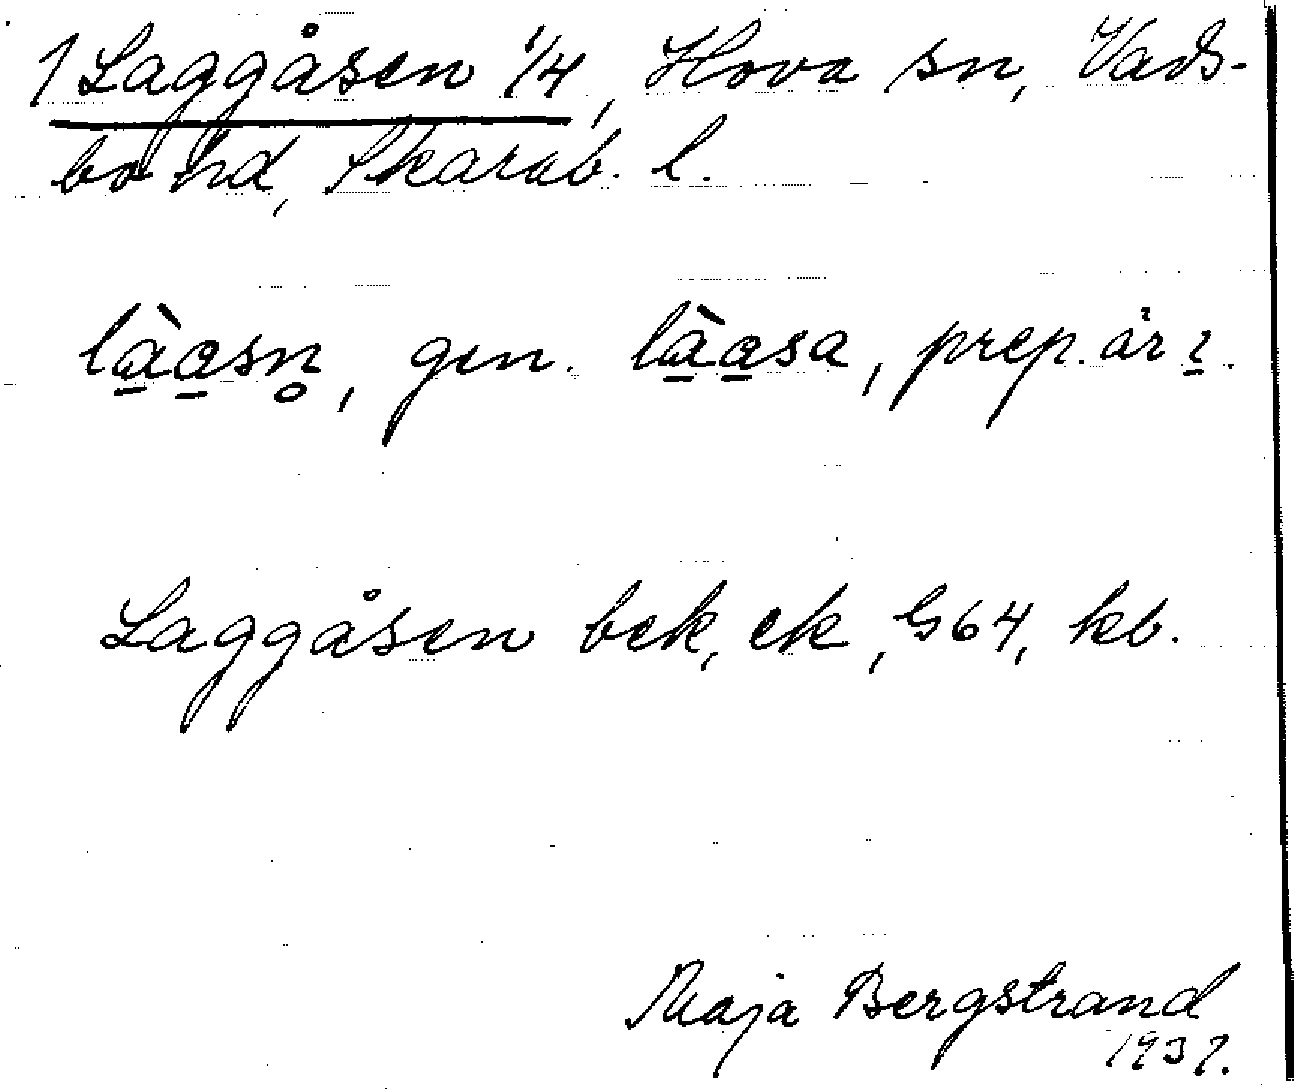 1 Laggåsen 1/4, Hova sn, Vads-
bo hd, Skarab. l.
là̱a̱sn̥, gen. là̱a̱sa, prep. är ı̱.
Laggåsen bek, ek, G64, kb.
Maja Bergstrand
1937.